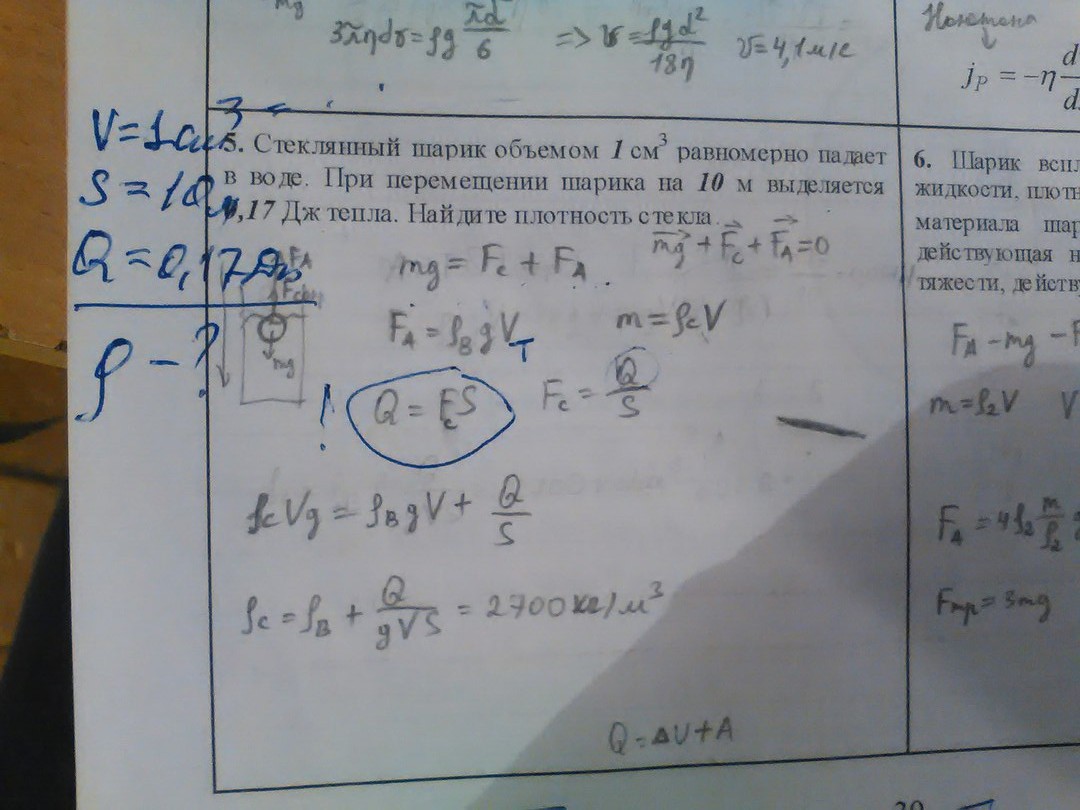 mg
3πηdv = ρg πd/6 => v = ρgd²/18η v = 4,1 м/с
Ньютона
j_P = -η d
V = 1 см³
S = 10 м
Q = 0,17 Дж
ρ - ?
5. Стеклянный шарик объемом 1 см³ равномерно падает
в воде. При перемещении шарика на 10 м выделяется
0,17 Дж тепла. Найдите плотность стекла.
F_A
mg
mg = F_c + F_A
mg + F_c + F_A = 0
F_A = ρ_B g V_T
m = ρ_c V
! Q = F_c S
F_c = Q/S
ρ_c V g = ρ_B g V + Q/S
ρ_c = ρ_B + Q/gVS = 2700 кг/м³
Q = ΔU + A
6. Шарик вспл
жидкости, плотн
материала шар
действующая н
тяжести, действу
F_A - mg - F
m = ρ₂V V
F_A = 4ρ₂ m/ρ₂ g
F_mp = 3mg
39